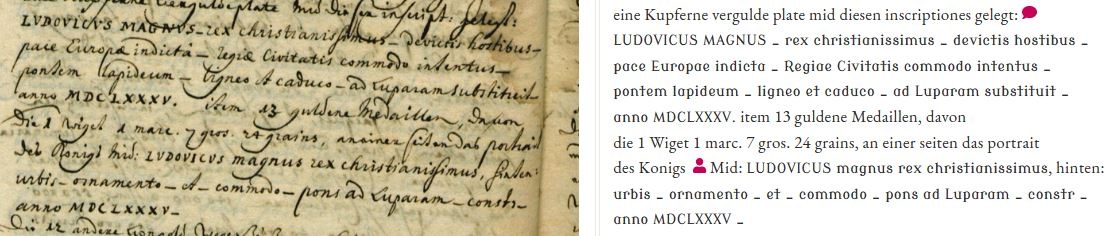 verguldeplate mid disen inscript: gelegt:
LUDOVICVS MAGNVS – rex christianissimus – devictis hostibus –
pace Europæ indictâ – regiæ Civitatis commodo intentus –
pontem lapideum – ligneo et caduco – ad Luparam substituit –
anno MDCLXXXV. item 13 guldene Medaillen, davon
die 1 Wiget 1 marc. 7 gros. 24 grains, an einer seiten das portrait
des Konigs mid: LVDOVICVS magnus rex christianissimus, hinten:
urbis – ornamento – et – commodo – pons ad Luparam – constr –
anno MDCLXXXV –
die 12 andere
eine Kupferne vergulde plate mid diesen inscriptiones gelegt:
LUDOVICUS MAGNUS _ rex christianissimus _ devictis hostibus _
pace Europae indicta _ Regiae Civitatis commodo intentus _
pontem lapideum _ ligneo et caduco _ ad Luparam substituit _
anno MDCLXXXV. item 13 guldene Medaillen, davon
die 1 Wiget 1 marc. 7 gros. 24 grains, an einer seiten das portrait
des Konigs Mid: LUDOVICUS magnus rex christianissimus, hinten:
urbis _ ornamento _ et _ commodo _ pons ad Luparam _ constr _
anno MDCLXXXV _